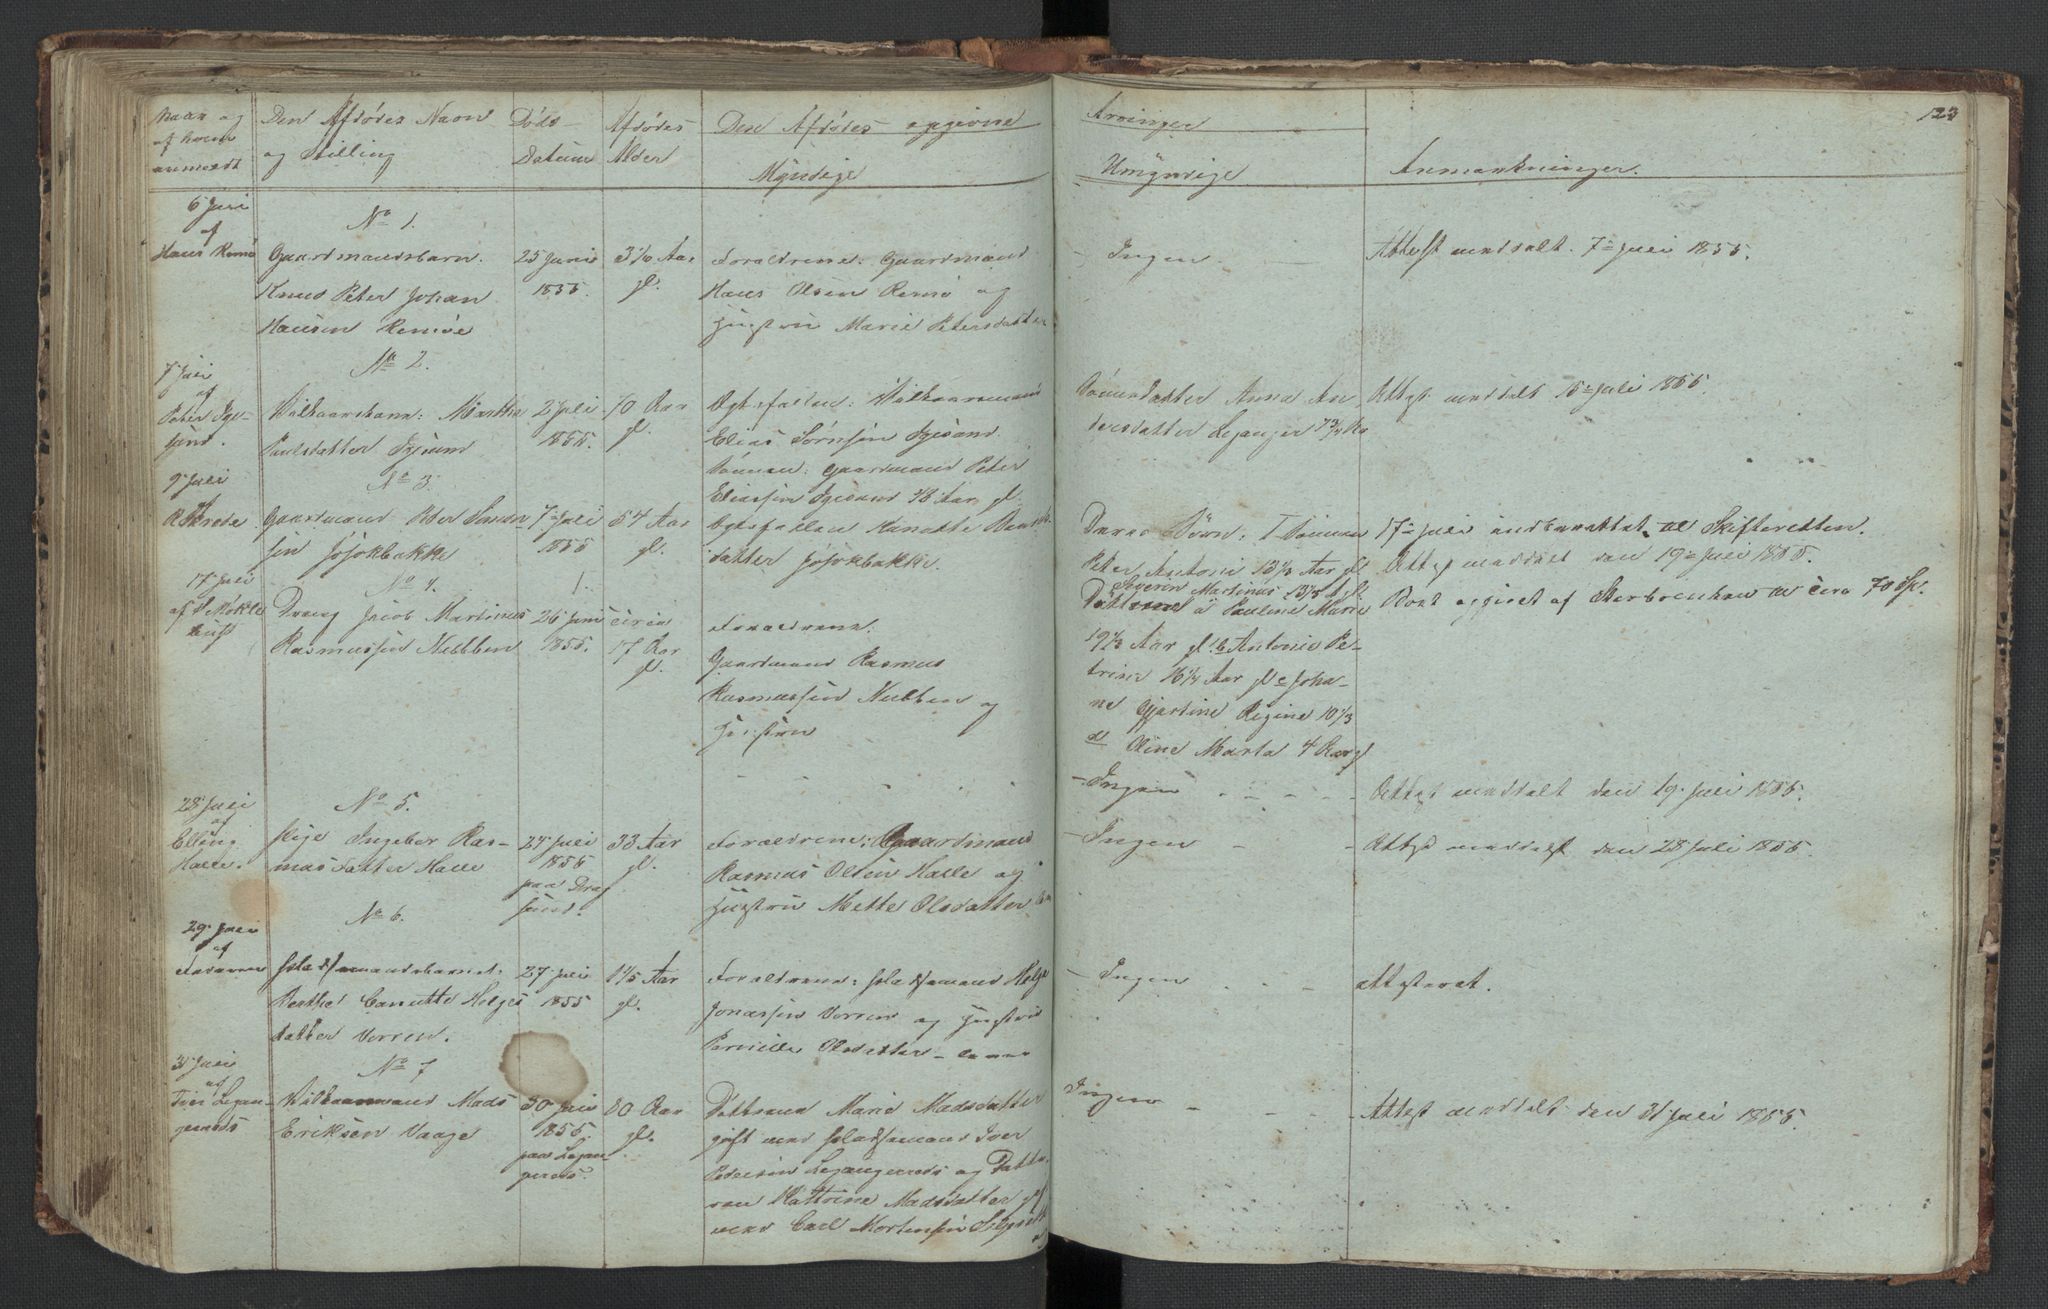 123
Naar og
af hvem
anmeldt
Den Afdødes Navn
og Stilling
Døds
Datum
Afdødes
Alder
Den Afdødes opgivne
Myndige
Arvinger
Umyndige
Anmærkninger.
6 Juli
af
Hans Remø
No 1.
Gaardmandsbarn.
Knud Peter Johan
Hansen Remøe
25 Juni
1855.
Aar
gl.
Forældrene: Gaardmand
Hans Olsen Remø og
Hustru Marie Petersdatter
Ingen
Attest meddelt 7de Juli 1855.
7 Juli
af
Peter Ige-
sund.
No 2.
Vilkaarskone: Marthe
Paulsdatter Igesund
2 Juli
1855.
70 Aar
gl.
Egtefællen: Vilkaarsmand
Elias Sørensen Igesund.
Sønnen: Gaardmand Peter
Eliassen Igesund 48 Aar gl.
Sønnedatter Anna An
dersdatter Leganger Aar
Attest meddelt 15de Juli 1855.
9 Juli
af
R Krede
No 3.
Gaardmand Peder Simon
sen Jøsokbakke
7de Juli
1855
54 Aar
gl.
Egtefællen Hanette
datter Jøsokbakke.
Deres Børn: I Sønner
Peter Antoni 13 1/3 Aar gl
Severin Martinus Aar gl.
Døttrene a Pauline Marie
19 1/3 Aar gl. b Antonie Pe-
trine 16 1/4 Aar gl c Joha-
ne Gjertine Regine 10 1/3
d Oline Marta 4 Aar gl
17de Juli indberettet til Skifteretten.
Attest meddelt den 19de Juli 1855.
Boet opgivet af Sterboenken til circa 70 Spd.
17 Juli
af S Møkle
bust
No 4.
Dreng Jacob Martinus
Rasmussen Nubben
26 Juni
1855.
circa
17 Aar
gl.
Forældrene:
Gaardmand Rasmus
Rasmussen Nubben og
Hustru
Ingen
Attest meddelt den 19 Juli 1855.
28 Juli
af
Elling
Halle.
No 5.
Pige Ingebor Ras-
musdatter Halle
24 Juli
1855
paa Drag
sund.
33 Aar
gl.
Forældrene: Gaardmand
Rasmus Olsen Halle og
Hustru Mette Olsdatter
Ingen
Attest meddelt den 28 Juli 1855.
29 Juli
af
Faderen
No 6.
Pladsmandsbarnet:
Berthe Canutte Helges
datter Vorren.
27 Juli
1855
1 1/5 Aar
gl.
Forældrene: Pladsmand Helge
Jonassen Vorren og Hustru
Pernille Olsdatter
Ingen
attesteret.
31 Juli
af
Iver Legan-
gereds
No 7
Vilkaarmand Mads
Eriksen Vaage
30 Juli
1855.
paa Legan
gereds.
80 Aar
gl.
Døttrene Marie Madsdatter
gift med Pladsmand Iver
Pedersen Legangereds og Datte-
ren Kathrine Madsdatter gift
med Carl Mortensen
Ingen
Attest meddelt den 31 Juli 1855.